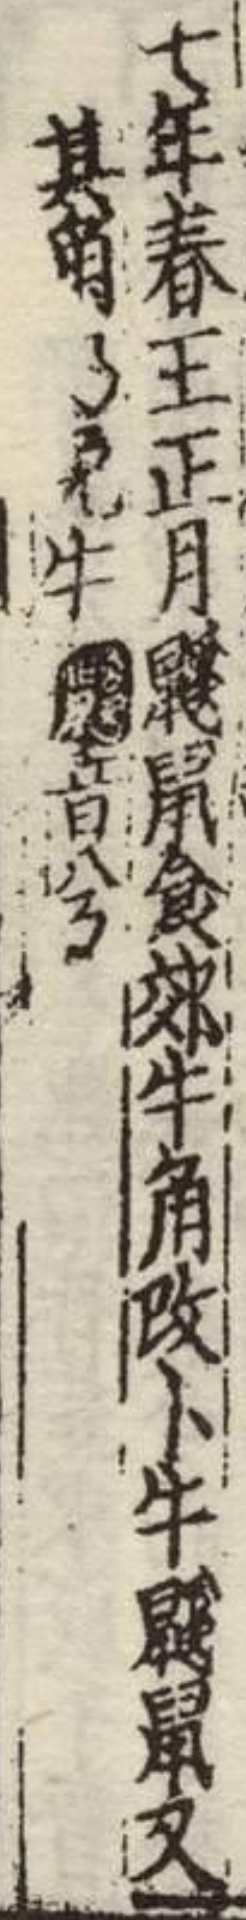 七年春王正月鼷鼠食郊牛角改卜牛鼷鼠又
其角乃免牛鼷音兮